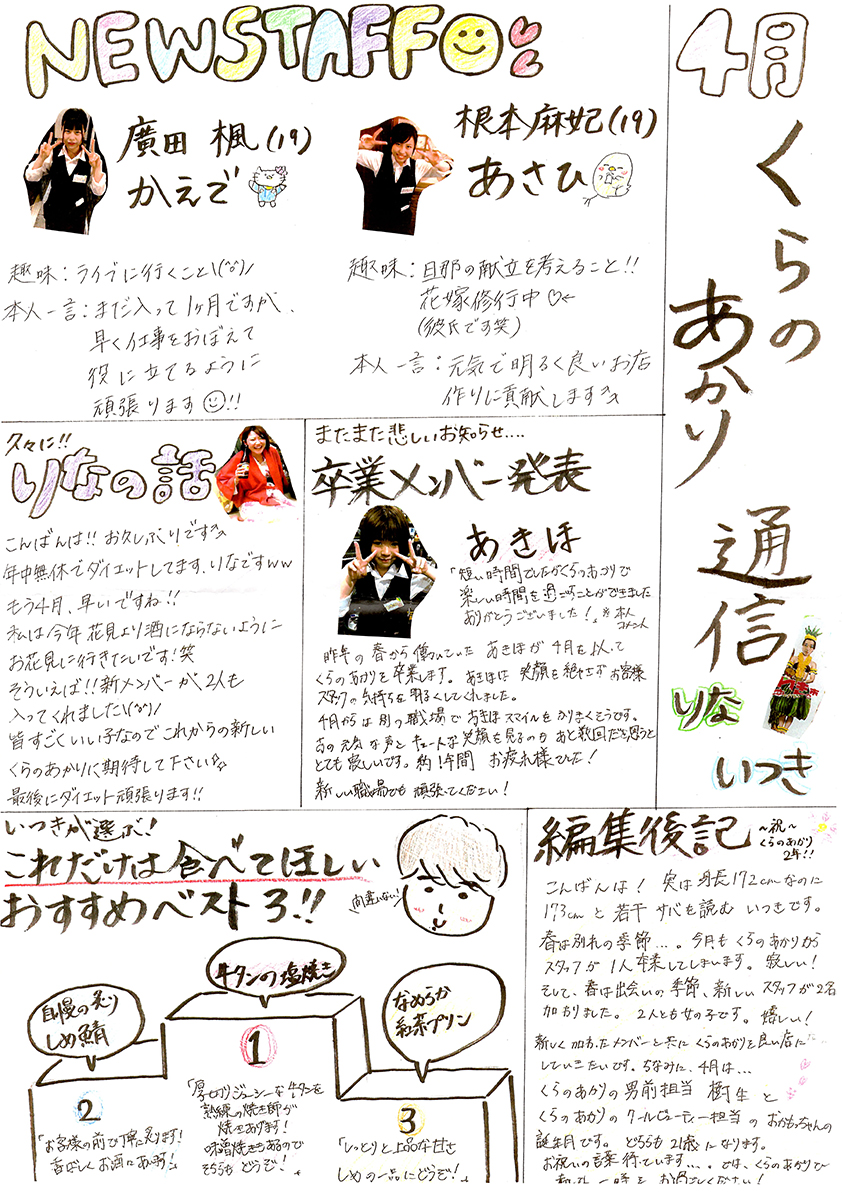 4月
くらの
あかり
通信
りな
いつき
NEWSTAFF
廣田 楓(19)
かえで
趣味:ライブに行くこと\(^o^)/
本人一言:まだ入って1ヶ月ですが、
早く仕事をおぼえて
役に立てるように
頑張ります!!
根本麻妃(19)
あさひ
趣味:旦那の献立を考えること!!
花嫁修行中♡←
(彼氏です笑)
本人一言:元気で明るく良いお店
作りに貢献します
久々に!!
りなの話
こんばんは!! お久しぶりです
年中無休でダイエットしてます、りなですww
もう4月、早いですね!!
私は今年花見より酒にならないように
お花見に行きたいです!笑
そういえば!!新メンバーが、2人も
入ってくれました\(^o^)/
皆すごくいい子なのでこれからの新しい
くらのあかりに期待して下さい☆
最後にダイエット頑張ります!!
またまた悲しいお知らせ....
卒業メンバー発表
あきほ
「短い時間でしたがくらのあかりで
楽しい時間を過ごすことができました
ありがとうございました!」※本人
コメント
昨年の春から働いていた あきほが 4月を以って
くらのあかりを卒業します。 あきほは 笑顔を絶やさず お客様
スタッフの気持ちを明るくしてくれました。
4月からは別の職場で あきほスマイルを かりきくそうです。
あの元気な声と キュートな笑顔を見るのも あと数回だと思うと
とても寂しいです。約1年間 お疲れ様でした!
新しい職場でも 頑張ってください!
いつきが選ぶ!
これだけは食べてほしい
おすすめベスト3!!
間違いない!
牛タンの塩焼き
自慢の炙り
しめ鯖
なめらか
紅茶プリン
1
「厚切りジューシーな牛タンを
熟練の焼き師が
焼きあげます!
味噌焼きもあるので
そちらも どうぞ!」
2
「お客様の前で丁寧に炙ります!
香ばしくお酒にあいます!」
3
「しっとりと上品な甘さ
しめの一品にどうぞ!」
編集後記
~祝~
くらのあかり
2年!!
こんばんは! 実は身長172cmなのに
173cmと若干 サバを読む いつきです。
春は別れの季節....。今月も くらのあかりから
スタッフが 1人卒業してしまいます。 寂しい!
そして、春は出会いの季節、新しいスタッフが2名
加わりました。 2人とも女の子です。嬉しい!
新しく加わったメンバーと共に くらのあかりを良い店に
していきたいです。ちなみに、4月は...
くらのあかりの男前担当 樹生と
くらのあかりの クールビューティー担当の おかもっちゃんの
誕生月です。 どちらも 21歳になります。
お祝いの言葉待っています....。では、くらのあかりで
一時を お過ごしください!